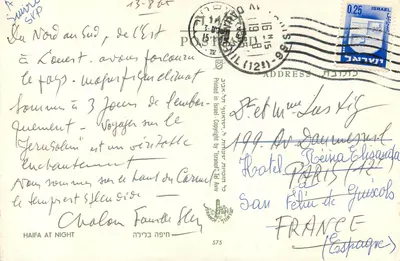 13-8-65
Du Nord au Sud, de l'Est
à l'Ouest. avons parcouru
le pays. magnifique climat
Sommes à 3 jours de l'embar-
quement. Voyage sur le
"Jerusalem" est un véritable
enchantement
Nous sommes sur le haut du Carmel
le temps est splendide.
Chalom
HAIFA AT NIGHT
חיפה בלילה
575
Printed in Israel
POSTCARD
ADDRESS
כתובת
ISRAEL
0.25
ישראל
Dr et Mme Lustig
199. Av Daumesnil
PARIS 12e
Hotel Reina Elisenda
San Feliu de Guixols
FRANCE
(Espagne)